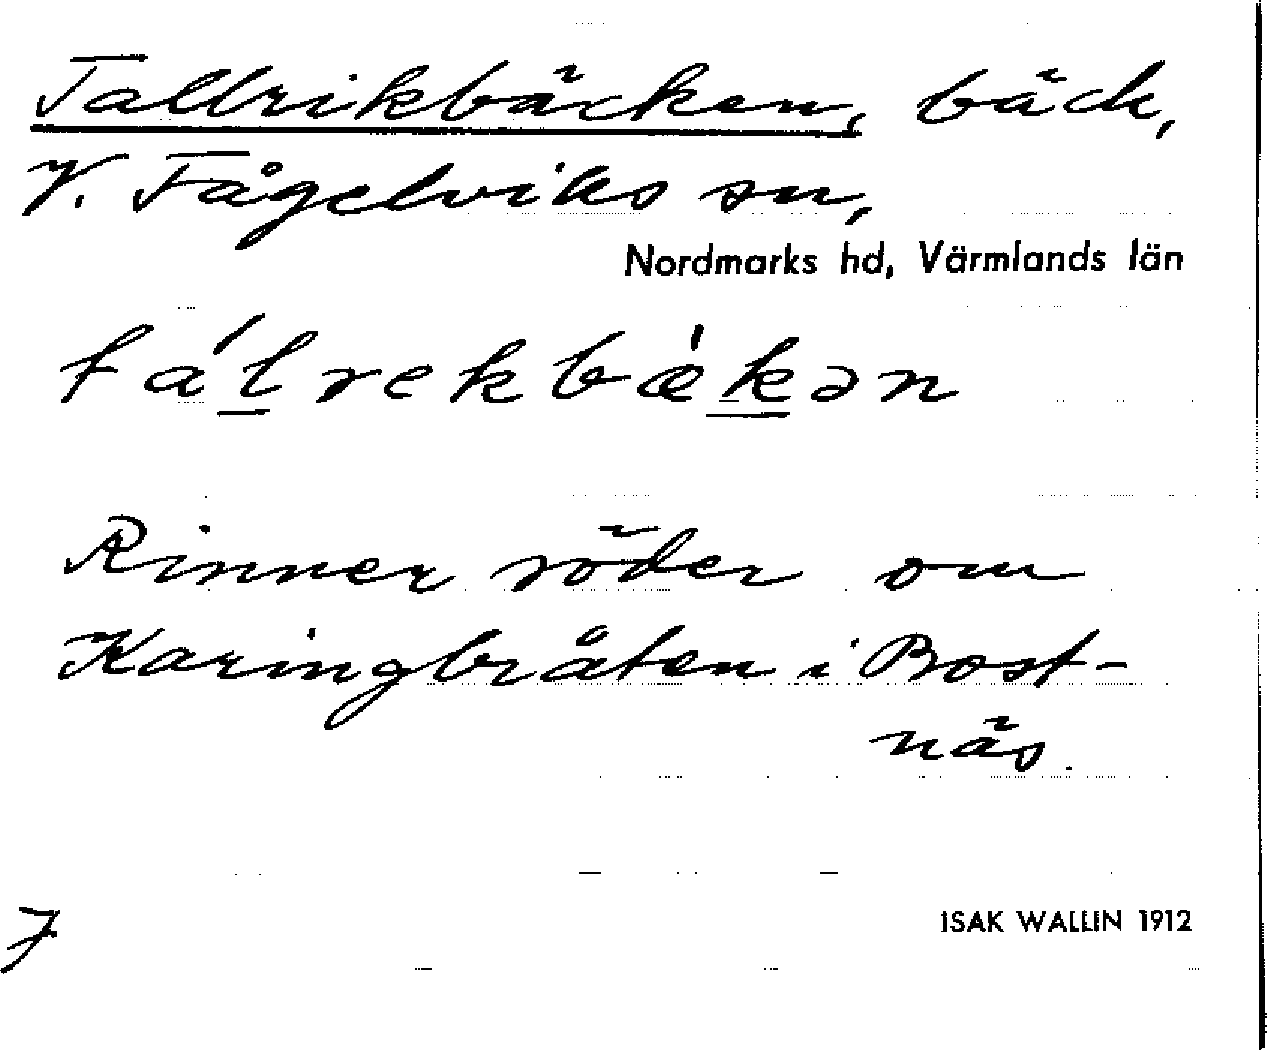 Tallrikbäcken, bäck,
V. Fågelviks sn,
Nordmarks hd, Värmlands län
tálrekbæ̀kən
Rinner söder om
Karingbråten i Bost-
näs.
ISAK WALLIN 1912